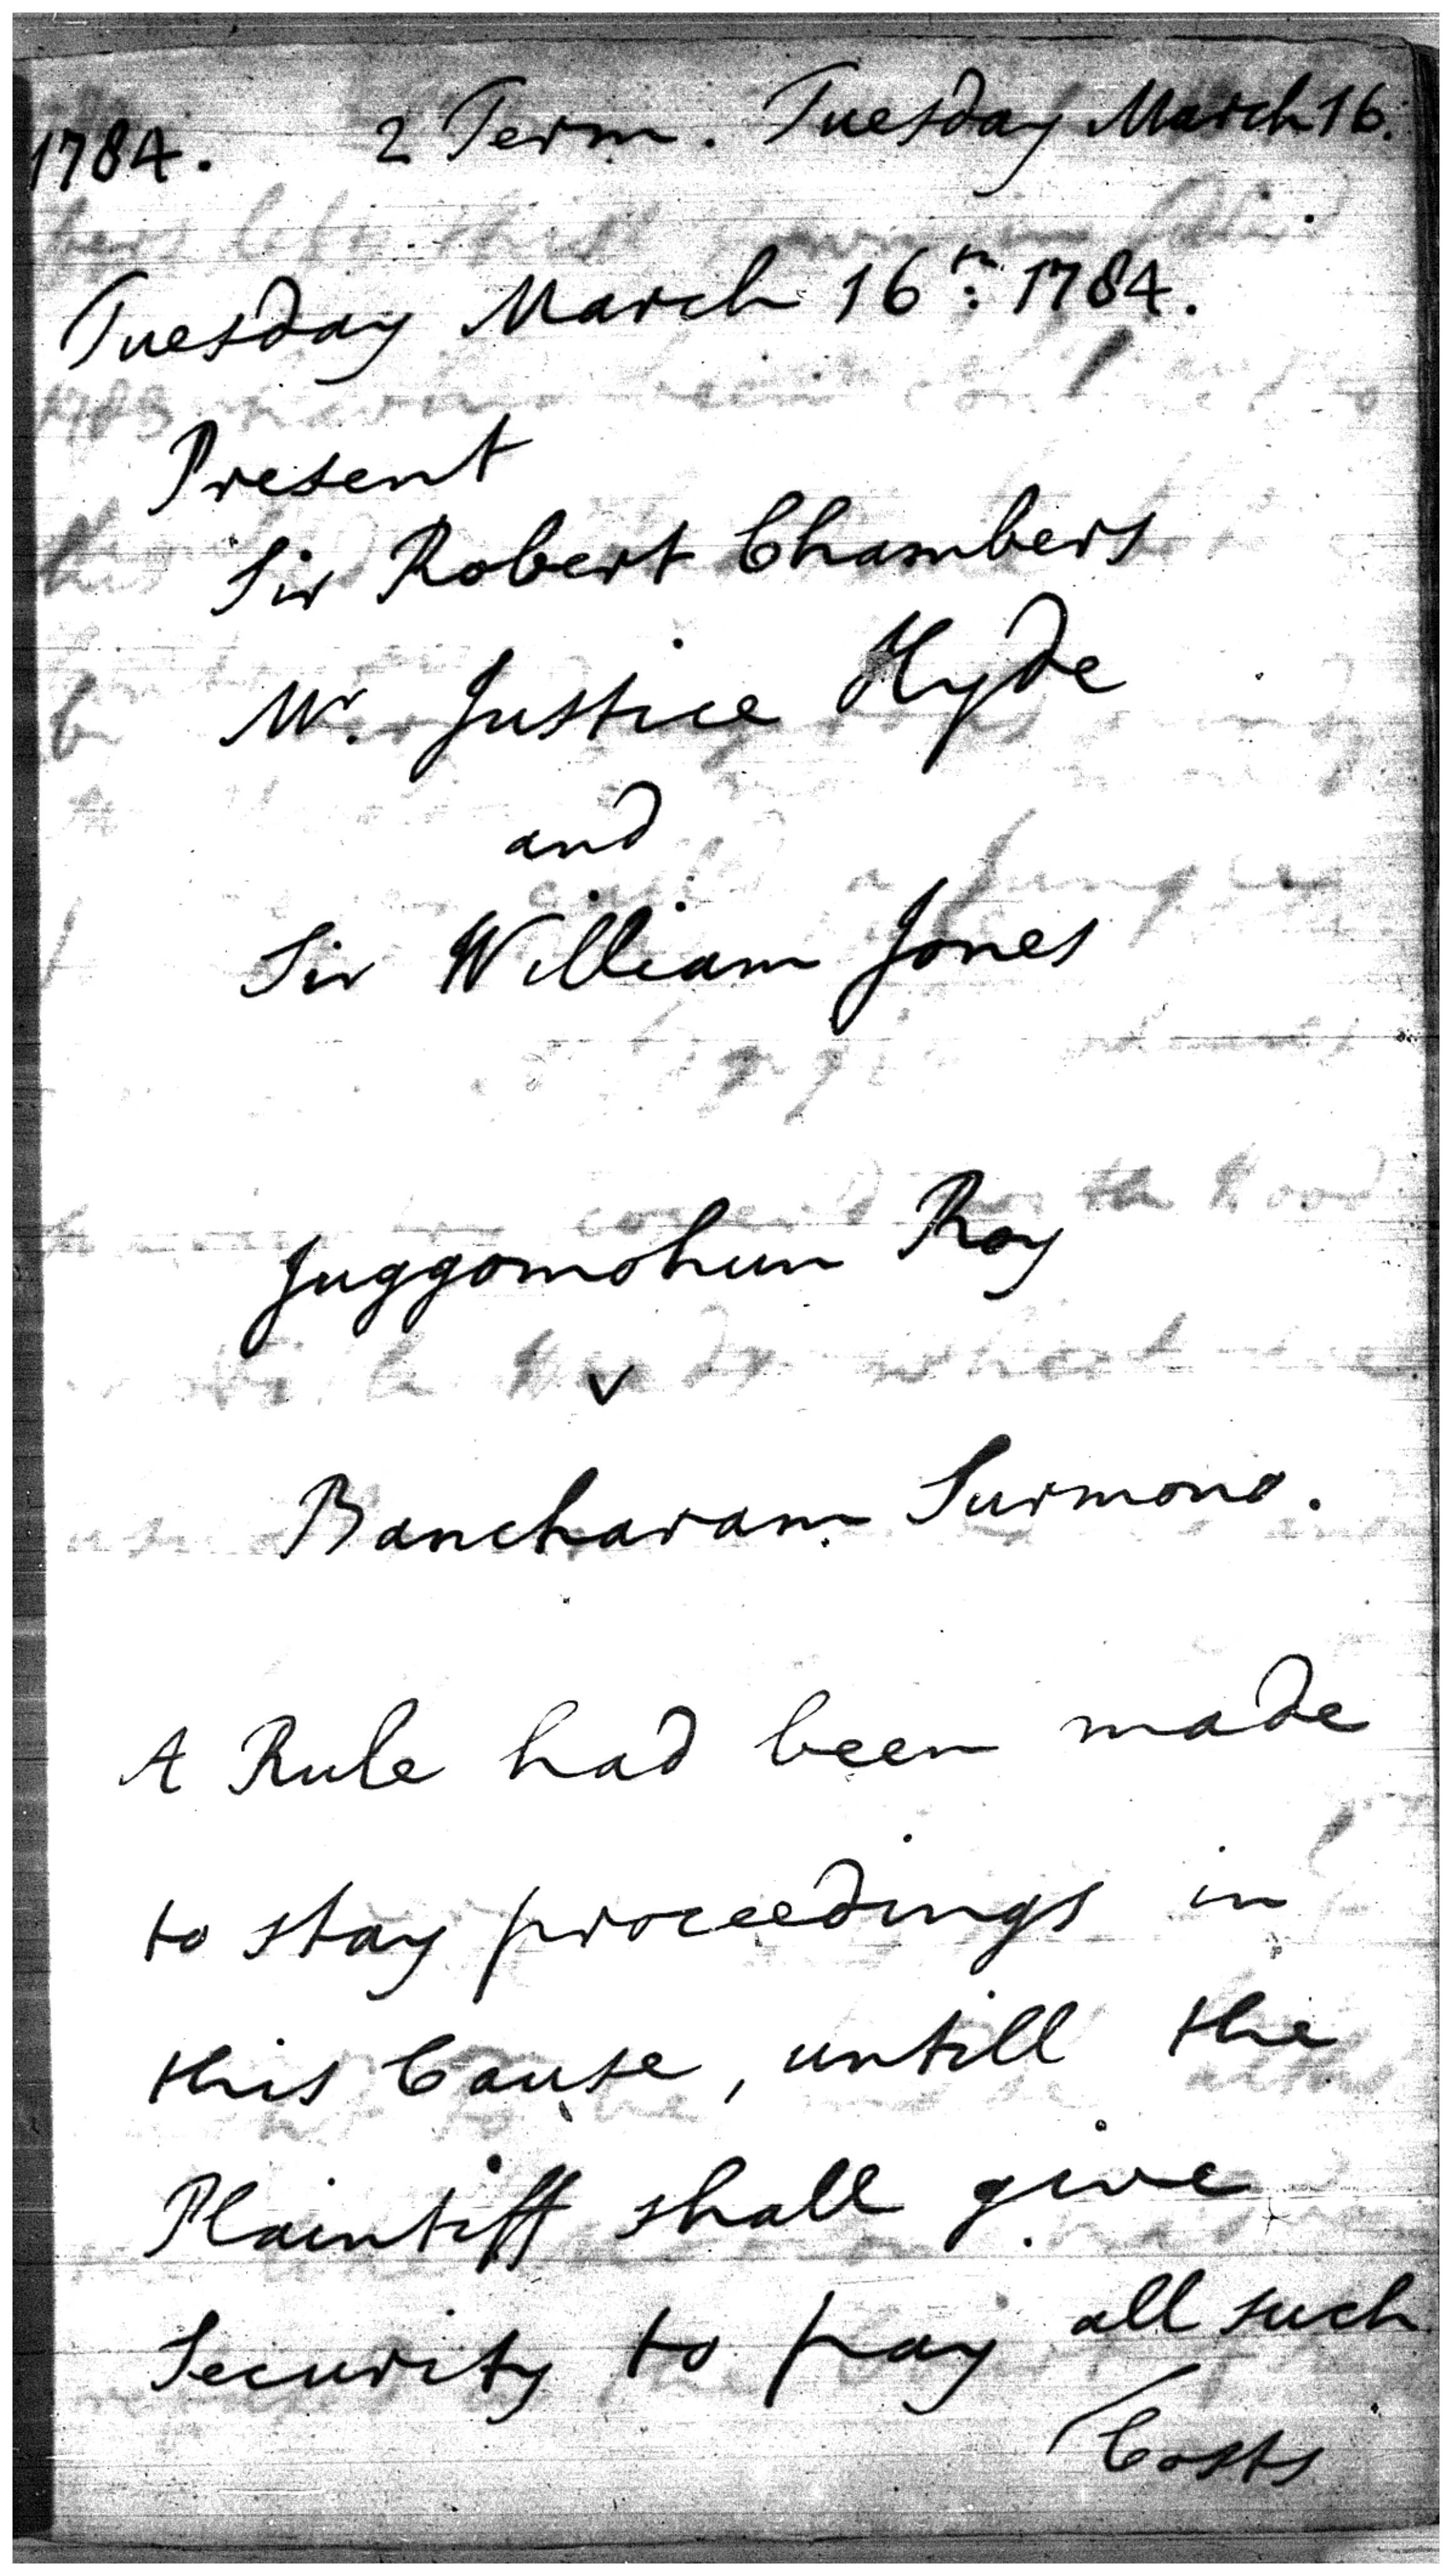 1784. 2 Term. Tuesday March 16.
Tuesday March 16th: 1784.
Present
Sir Robert Chambers
Mr. Justice Hyde
and
Sir William Jones
Juggomohun Roy
v
Bancharam Surmono.
A Rule had been made
to stay proceedings in
this Cause, untill the
Plaintiff shall give
Security to pay all such
Costs